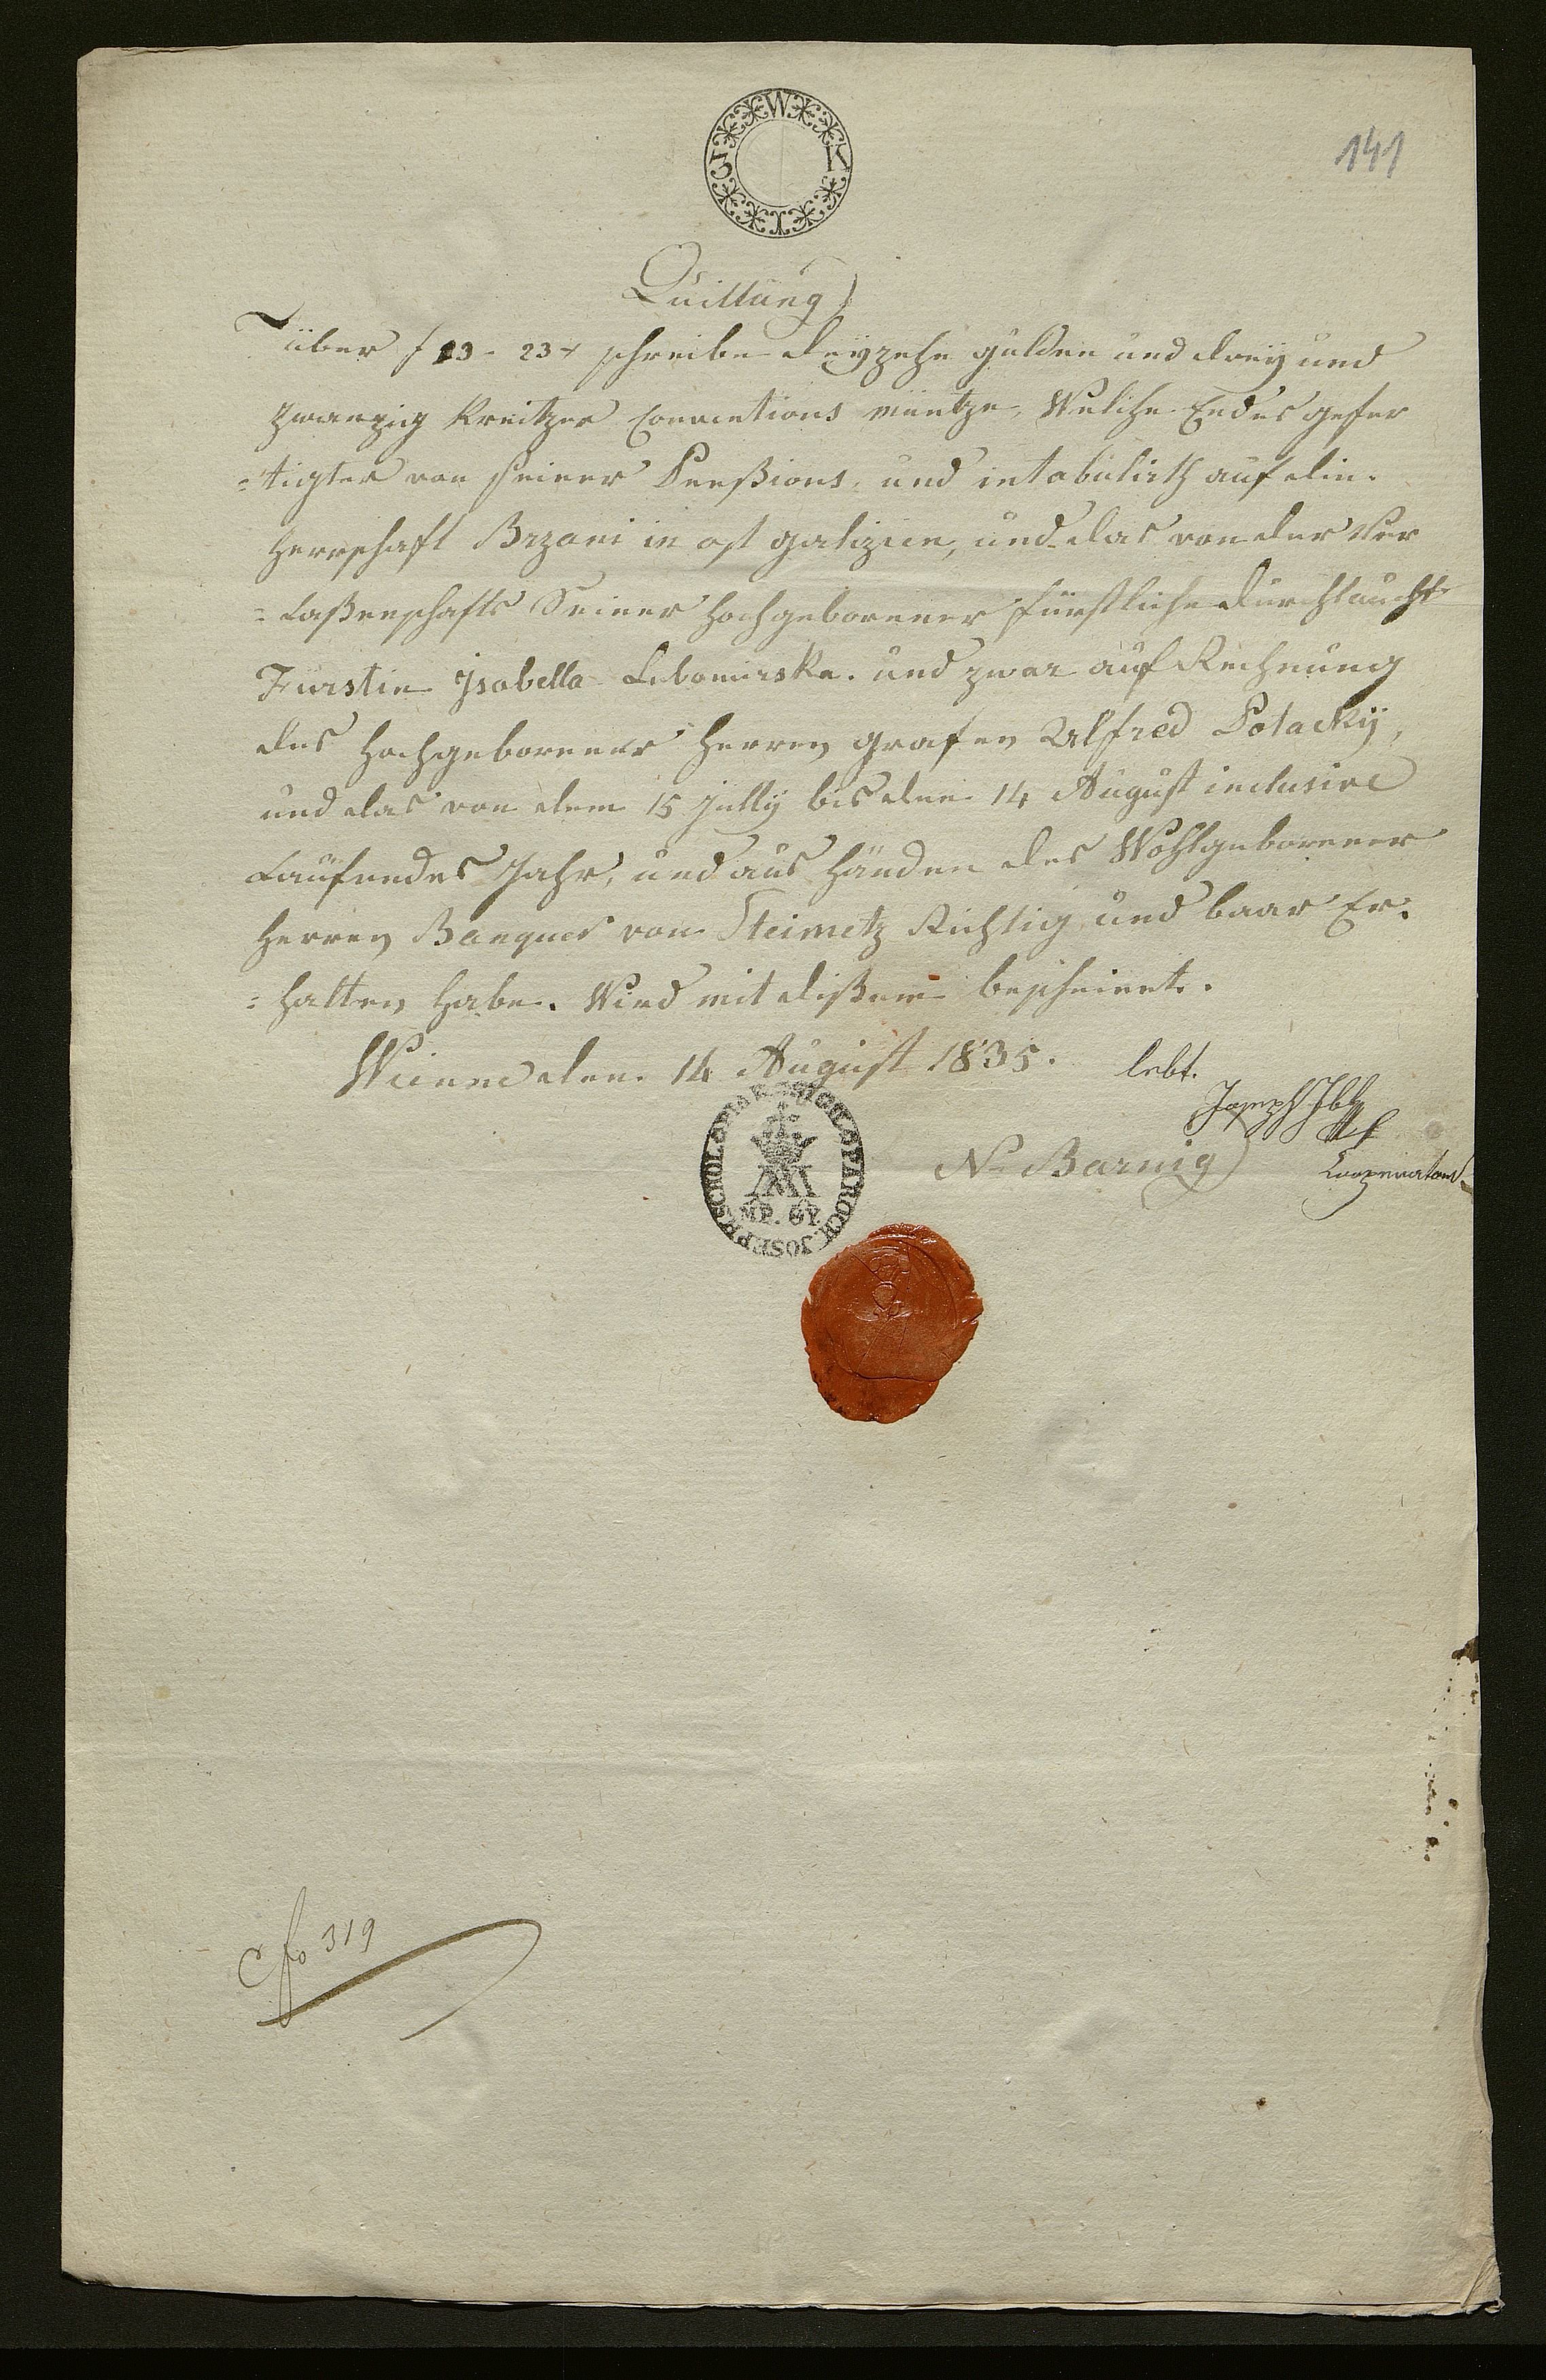 141
Quittung
über f 13 - 23 x schreibe dreyzehn gulden und dreÿ und
zwanzig Kreitzer Conventions müntze, Welche Endes gefer
=tigter von seiner Penßions, und intabulirth auf die
Herrschaft Brzani in ost galizien, und das von der Ver
=laßenschafts Seiner Hochgeborener fürstliche durchlaucht
Fürstin Jsabella Lubomirska. und zwar auf Rechnung
des Hochgeborener Herren grafen Alfred Potackÿ,
und das von dem 15 Jullÿ bis den 14 August inclusive
Laufendes Jahr, und aus Händen des Wohlgeborener
Herren Banquer von Steimetz Richtig und baar Er=
=halten habe. Wird mit dißem bescheinet.
Wienn den 14 August 1835. lebt.
Joseph
N Barnig
Cooperator
SCHOL. PIAR. PAROCH. JOSEPH
MP. ΘΥ.
Cfo 319